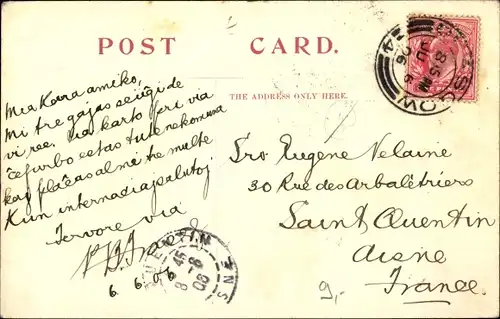 POST CARD.
THE ADDRESS ONLY HERE.
Mia Kara amiko,
Mi tre gajas sciigi de
vi ree. La karto pri via
ĉefurbo estas tute nekonuna
kaj plaĉas al mi tre multe
Kun internaciaj salutoj
Fervore via
6. 6. 06
Sro Eugène Velaine
30 Rue des Arbalêtriers
Saint Quentin
Aisne
France.
9,-
GLASGOW
AISNE